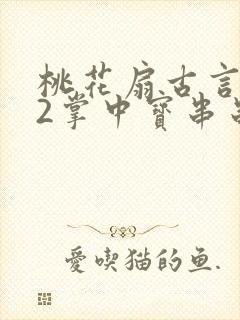 桃花扇古言
2掌中寳串
愛喫猫的鱼.